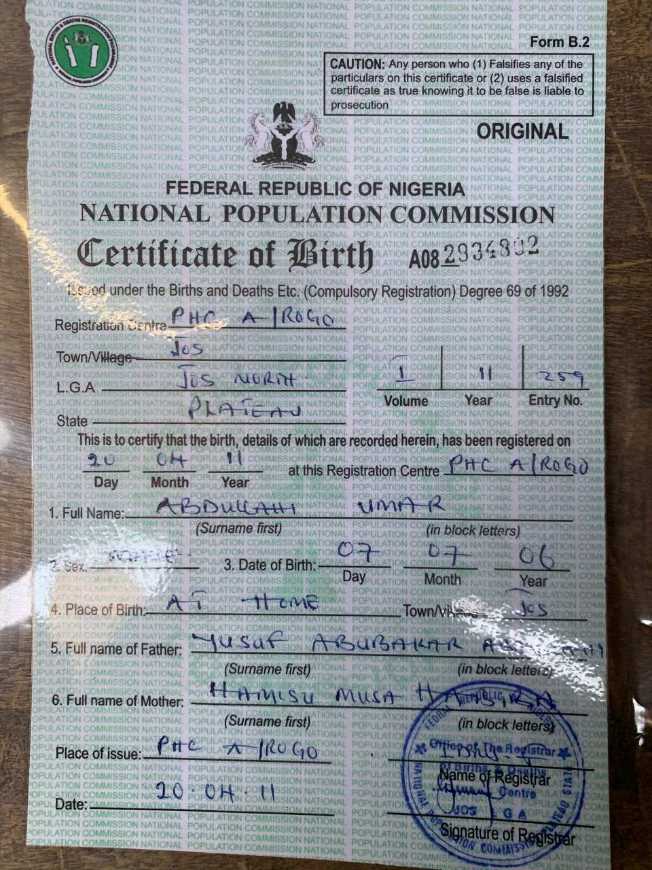 Form B.2
CAUTION: Any person who (1) Falsifies any of the
particulars on this certificate or (2) uses a falsified
certificate as true knowing it to be false is liable to
prosecution
ORIGINAL
FEDERAL REPUBLIC OF NIGERIA
NATIONAL POPULATION COMMISSION
Certificate of Birth A08 2934892
Issued under the Births and Deaths Etc. (Compulsory Registration) Degree 69 of 1992
Registration Centre PHC A/ROGO
Town/Village JOS
L.G.A JOS NORTH
I 11 259
Volume Year Entry No.
State PLATEAU
This is to certify that the birth, details of which are recorded herein, has been registered on
20 04 11 at this Registration Centre PHC A/ROGO
Day Month Year
1. Full Name: ABDULLAHI UMAR
(Surname first) (in block letters)
2. Sex: MALE 3. Date of Birth: 07 07 06
Day Month Year
4. Place of Birth: AT HOME Town/Village JOS
5. Full name of Father: YUSUF ABUBAKAR
(Surname first) (in block letters)
6. Full name of Mother: HAMISU MUSA
(Surname first) (in block letters)
Place of issue: PHC A/ROGO
Name of Registrar
Date: 20.04.11
Signature of Registrar